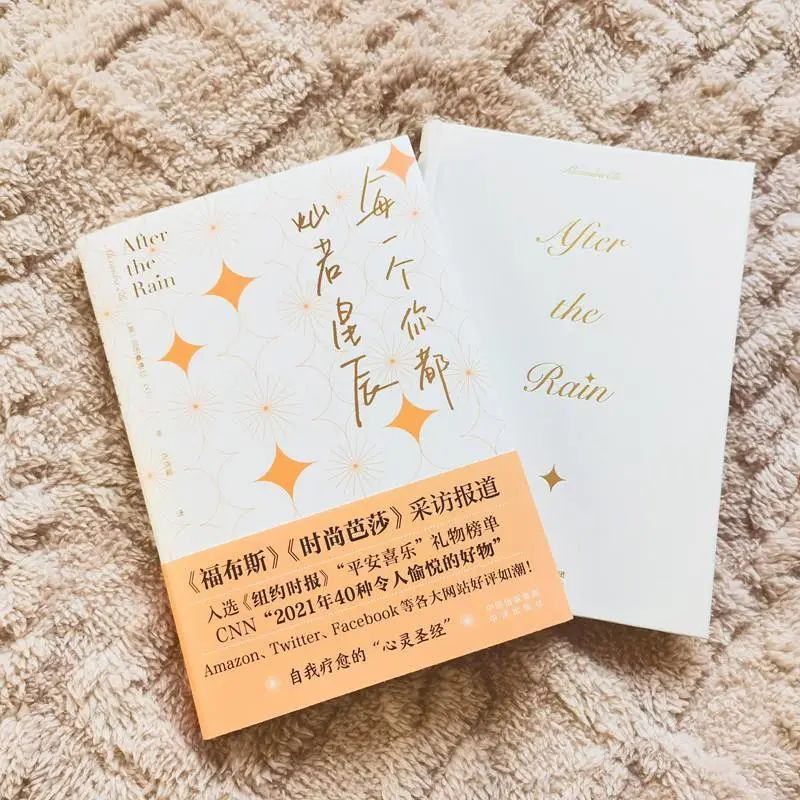 After
the
Rain
Alexandra Elle
每一个你都
灿若星辰
《福布斯》《时尚芭莎》采访报道
入选《纽约时报》“平安喜乐”礼物榜单
CNN“2021年40种令人愉悦的好物”
Amazon、Twitter、Facebook等各大网站好评如潮！
自我疗愈的“心灵圣经”
中国出版集团
中译出版社
Alexandra Elle
After
the
Rain
团